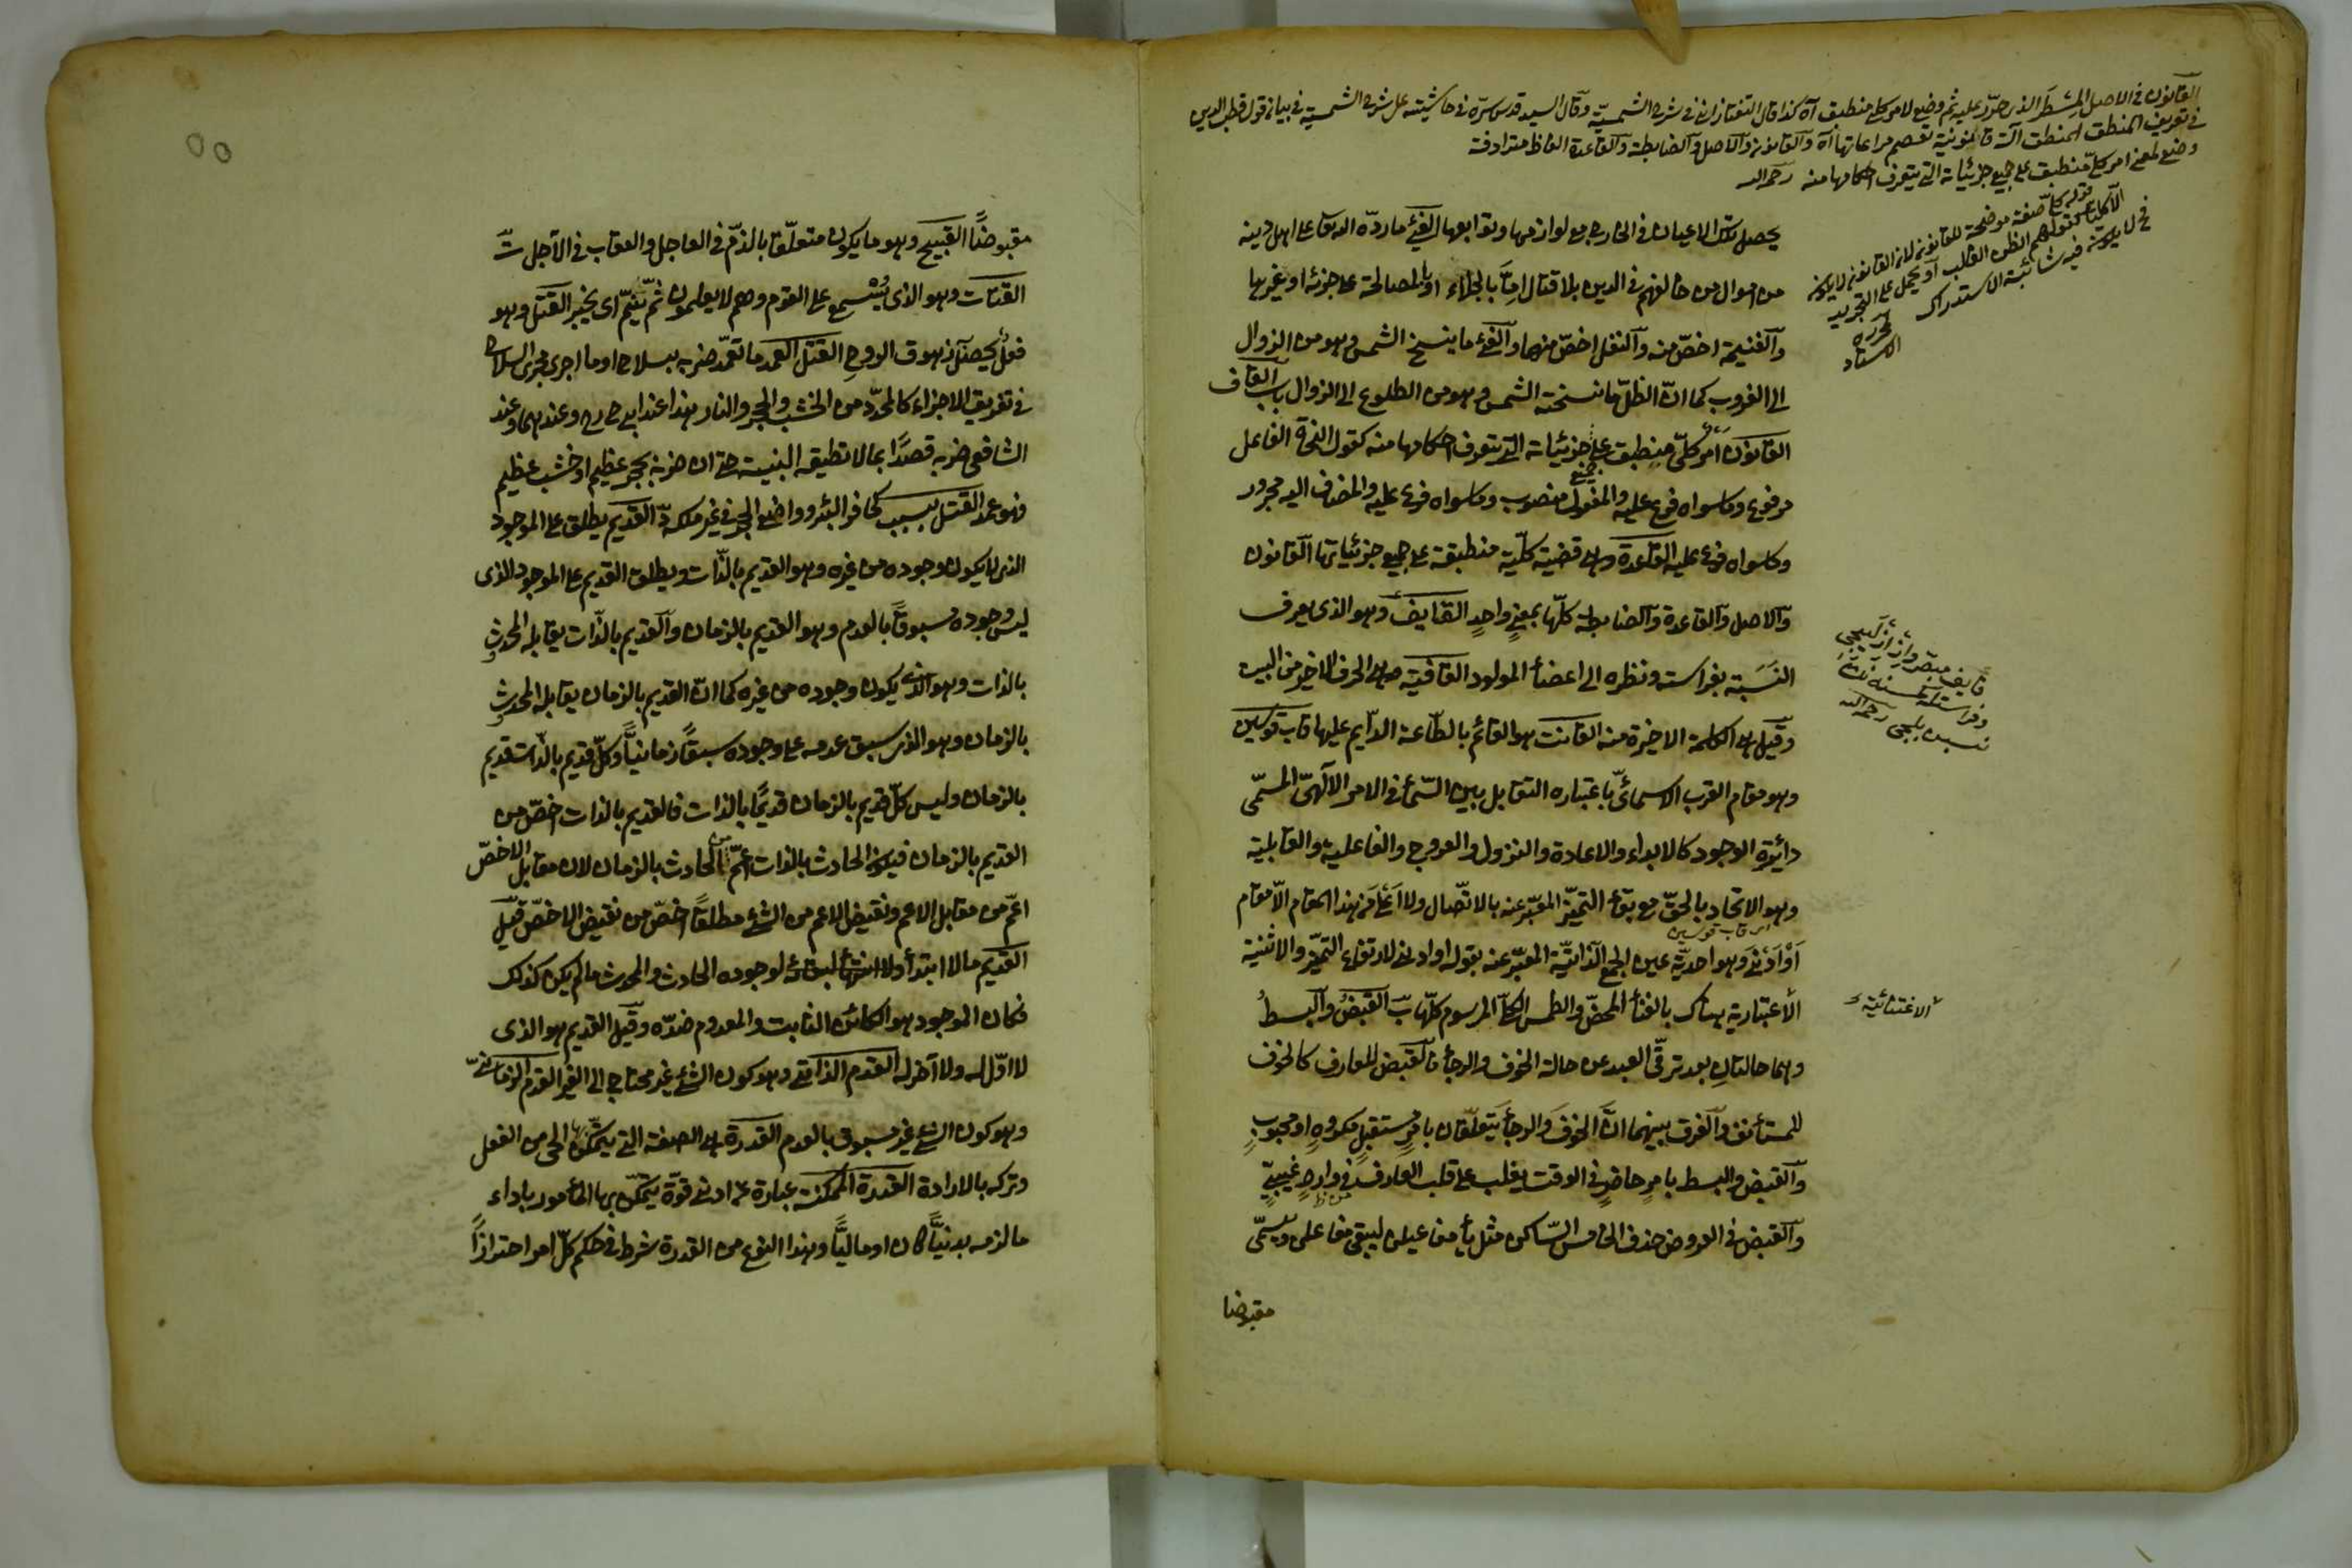 القانون في الاصل المسطر الذي جرّ عليه ثم وضع لامر كلي منطبق آه كذا قال التفتازاني في شرح الشمسيّة وقال السيد قدس سرّه في حاشيته على شرح الشمسية في بيان قول قطب الدين
في تعريف المنطق المنطق آلة قانونية تعصم مراعاتها آه والقانون والاصل والضابطة والقاعدة الفاظ مترادفة
وضع لمعنى امر كلّي منطبق على جميع جزئياته التي يتعرف احكامها منه رحمه الله
قوله كلّي صفة موضحة للقانون لان القانون لا يكون
الّا كليّا
فح لا يكون فيه شائبة الاستدراك
يحصل بتلك الاعيان في الخارج مع لوازمها وتوابعها الفيء ما ردّه الله تعالى على اهل دينه
من اموال من خالفهم في الدين بلا قتال امّا بالجلاء او بالمصالحة على جزية او غيرها
والغنيمة اخصّ منه والنفل اخصّ منهما والفيء ما ينسخ الشمس وهو من الزوال
الى الغروب كما انّ الظلّ ما نسخته الشمس وهو من الطلوع الى الزوال باب القاف
القانون امر كلّي منطبق على جميع جزئياته التي يتعرف احكامها منه كقول النحاة الفاعل
مرفوع وما سواه فرع عليه والمفعول منصوب وما سواه فرع عليه والمضاف اليه مجرور
وما سواه فرع عليه القاعدة وهي قضية كلّية منطبقة على جميع جزئياتها القانون
والاصل والقاعدة والضابطة كلّها بمعنى واحد القايف وهو الذي يعرف
النسبة بفراسته ونظره الى اعضاء المولود القافية هي الحرف الاخير من البيت
وقيل هي الكلمة الاخيرة منه القانت هو القائم بالطّاعة الدّايم عليها قاب قوسين
وهو مقام القرب الاسمائي باعتباره التقابل بين السّماء في الامر الالهيّ المسمّى
دائرة الوجود كالابداء والاعادة والنزول والعروج والفاعلية والقابلية
وهو الاتحاد بالحقّ مع بقاء التميّز المعبّر عنه بالاتّصال ولا اعلى من هذا المقام الّا مقام
اي قاب قوسين
اَوْ اَدْنى وهو احديّة عين الجمع الذاتيّة المعبّر عنه بقوله او ادنى لارتفاع التميّز والاثنية
الاعتبارية هناك بالفناء المحض والطمس الكلّي للرسوم كلّها بّ القبض والبسط
الاثنائية
وهما حالتان بعد ترقّي العبد عن حالة الخوف والرجاء فالقبض للعارف كالخوف
للمستأنف والفرق بينهما انّ الخوف والرجاء يتعلّقان بامر مستقبل مكروه او محبوب
والقبض والبسط بامر حاضر في الوقت يغلب على قلب العارف من وارد غيبيّ
والقبض في العروض حذف الخامس السّاكن مثل ياء مفاعيلن ليبقى مفاعلن ويسمّى
مقبوضا
مقبوضاً القبيح وهو ما يكون متعلّقا بالذّم في العاجل والعقاب في الآجل تّ
القتات وهو الذي يتسمع على القوم وهم لا يعلمون ثمّ ينمّ اي يخبر القتل وهو
فعل يحصل به زهوق الروح القتل العمد ما تعمّد ضربه بسلاح او ما اجرى مجرى السلاح
في تفريق الاجزاء كالمحدّد من الخشب والحجر والنار هذا عند ابي ح رح وعندهما وعند
الشافعي ضربه قصدًا بما لا تطيقه البنية حتى ان ضربه بحجر عظيم او خشب عظيم
فهو عمد القتل بسبب كحافر البئر وواضع الحجر في غير ملكه دّ القديم يطلق على الموجود
الذي لا يكون وجوده من غيره وهو القديم بالذّات ويطلق القديم على الموجود الذي
ليس وجوده مسبوقاً بالعدم وهو القديم بالزمان والقديم بالذّات يقابله المحدث
بالذات وهو الذي يكون وجوده من غيره كما انّ القديم بالزمان يقابله المحدث
بالزمان وهو الذي سبق عدمه على وجوده سبقاً زمانيّاً وكلّ قديم بالذّات قديم
بالزمان وليس كلّ قديم بالزمان قديمًا بالذات فالقديم بالذات اخصّ من
القديم بالزمان فيكون الحادث بالذات اعمّ من الحادث بالزمان لان مقابل الاخصّ
اعمّ من مقابل الاعم ونقيض الاعم من الشيء مطلقاً اخصّ من نقيض الاخصّ قيل
القديم ما لا ابتداء ولا انتهاء لوجوده الحادث والمحدث ما لم يكن كذلك
فكان الموجود هو الكائن الثابت والمعدوم ضدّه وقيل القديم هو الذي
لا اوّل له ولا آخر له القدم الذاتي وهو كون الشيء غير محتاج الى الغير القدم الزمانيّ
وهو كون الشيء غير مسبوق بالعدم القدرة هي الصفة التي يتمكّن بها الحي من الفعل
وتركه بالارادة القدرة الممكنة عبارة عن ادنى قوّة يتمكّن بها المأمور باداء
ما لزمه بدنيّاً كان او ماليّاً وهذا النوع من القدرة شرط في حكم كلّ امر احترازاً